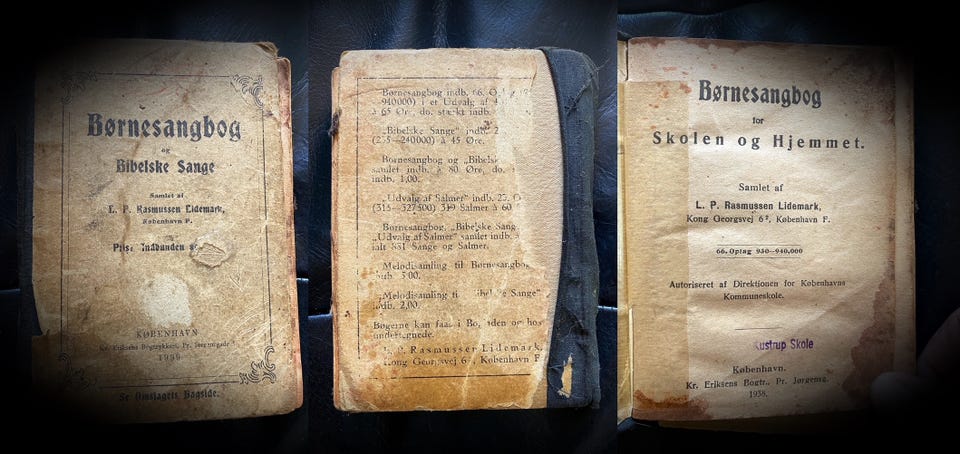 Børnesangbog
og
Bibelske Sange
Samlet af
L. P. Rasmussen Lidemark,
København F.
Pris: Indbunden
KØBENHAVN
Kr. Eriksens Bogtrykkeri, Pr. Jørgensgade
Se Omslagets Bagside.
Børnesangbog indb. 66. O
—940000) i et Udvalg af
à 65 Øre, do. stærkt indb.
„Bibelske Sange" indb. 2
—240000) à 45 Øre.
Børnesangbog og „Bibelske
samlet indb. à 80 Øre, do.
indb. 1,00.
„Udvalg af Salmer" indb. 25. O
(315—327500) 319 Salmer à 60
Børnesangbog, „Bibelske Sang
„Udvalg af Salmer" samlet indb.
ialt 831 Sange og Salmer.
Melodisamling til Børnesangbog
indb. 5,00.
„Melodisamling til Bibelske Sange"
indb. 2,00.
Bøgerne kan faas i Bo laden og hos
undertegnede.
L. P. Rasmussen Lidemark,
Kong Georgsvej 6², København F.
Børnesangbog
for
Skolen og Hjemmet.
Samlet af
L. P. Rasmussen Lidemark,
Kong Georgsvej 6², København F.
66. Oplag 930—940.000
Autoriseret af Direktionen for Københavns
Kommuneskole.
Kustrup Skole
København.
Kr. Eriksens Bogtr., Pr. Jørgensg.
1938.